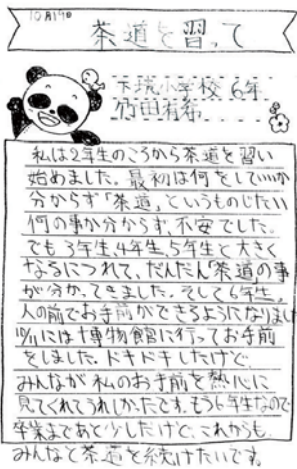 10月19日
茶道を習って
下境小学校 6年
竹田有希
私は2年生のころから茶道を習い
始めました。最初は何をしていいか
分からず「茶道」というものじたい
何の事か分からず、不安でした。
でも3年生、4年生、5年生と大きく
なるにつれて、だんだん「茶道の事
が分かってきました。そして6年生。
人の前でお手前ができるようになりました
10/11には博物館に行ってお手前
をしました。ドキドキしたけど
みんなが私のお手前を熱心に
見てくれてうれしかったです。もう6年生なので
卒業まであと少しだけど、これからも
みんなと茶道を続けたいです。